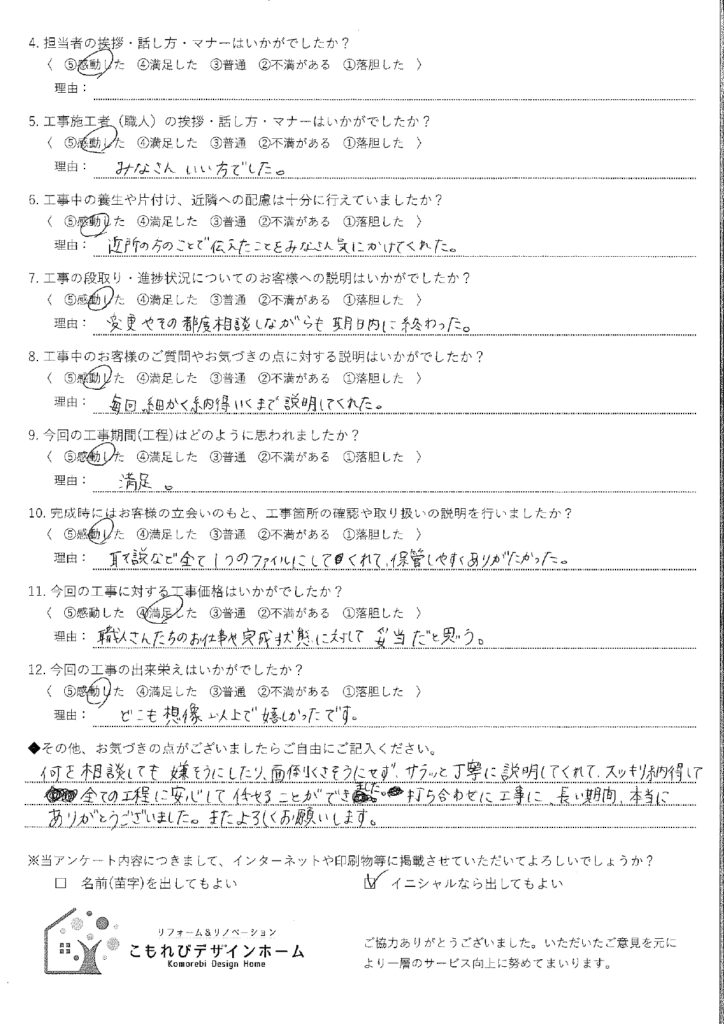 4. 担当者の挨拶・話し方・マナーはいかがでしたか？
〈 ⑤感動した ④満足した ③普通 ②不満がある ①落胆した 〉
理由：
5. 工事施工者（職人）の挨拶・話し方・マナーはいかがでしたか？
〈 ⑤感動した ④満足した ③普通 ②不満がある ①落胆した 〉
理由： みなさん いい方でした。
6. 工事中の養生や片付け、近隣への配慮は十分に行えていましたか？
〈 ⑤感動した ④満足した ③普通 ②不満がある ①落胆した 〉
理由： 近所の方のことで伝えたことをみなさん気にかけてくれた。
7. 工事の段取り・進捗状況についてのお客様への説明はいかがでしたか？
〈 ⑤感動した ④満足した ③普通 ②不満がある ①落胆した 〉
理由： 変更やその都度相談しながらも期日内に終わった。
8. 工事中のお客様のご質問やお気づきの点に対する説明はいかがでしたか？
〈 ⑤感動した ④満足した ③普通 ②不満がある ①落胆した 〉
理由： 毎回 細かく納得いくまで説明してくれた。
9. 今回の工事期間(工程)はどのように思われましたか？
〈 ⑤感動した ④満足した ③普通 ②不満がある ①落胆した 〉
理由： 満足。
10. 完成時にはお客様の立会いのもと、工事箇所の確認や取り扱いの説明を行いましたか？
〈 ⑤感動した ④満足した ③普通 ②不満がある ①落胆した 〉
理由： 取説など全て1つのファイルにしてくれて、保管しやすくありがたかった。
11. 今回の工事に対する工事価格はいかがでしたか？
〈 ⑤感動した ④満足した ③普通 ②不満がある ①落胆した 〉
理由： 職人さんたちのお仕事や完成状態に対して 妥当だと思う。
12. 今回の工事の出来栄えはいかがでしたか？
〈 ⑤感動した ④満足した ③普通 ②不満がある ①落胆した 〉
理由： どこも想像以上で嬉しかったです。
◆その他、お気づきの点がございましたらご自由にご記入ください。
何を相談しても 嫌そうにしたり、面倒くさそうにせず、サラッと丁寧に説明してくれて、スッキリ納得して
全ての工程に安心して 任せることができました。打ち合わせに工事に、長い期間、本当に
ありがとうございました。またよろしくお願いします。
※当アンケート内容につきまして、インターネットや印刷物等に掲載させていただいてよろしいでしょうか？
□ 名前(苗字)を出してもよい ☑ イニシャルなら出してもよい
リフォーム＆リノベーション
こもれびデザインホーム
Komorebi Design Home
ご協力ありがとうございました。いただいたご意見を元に
より一層のサービス向上に努めてまいります。